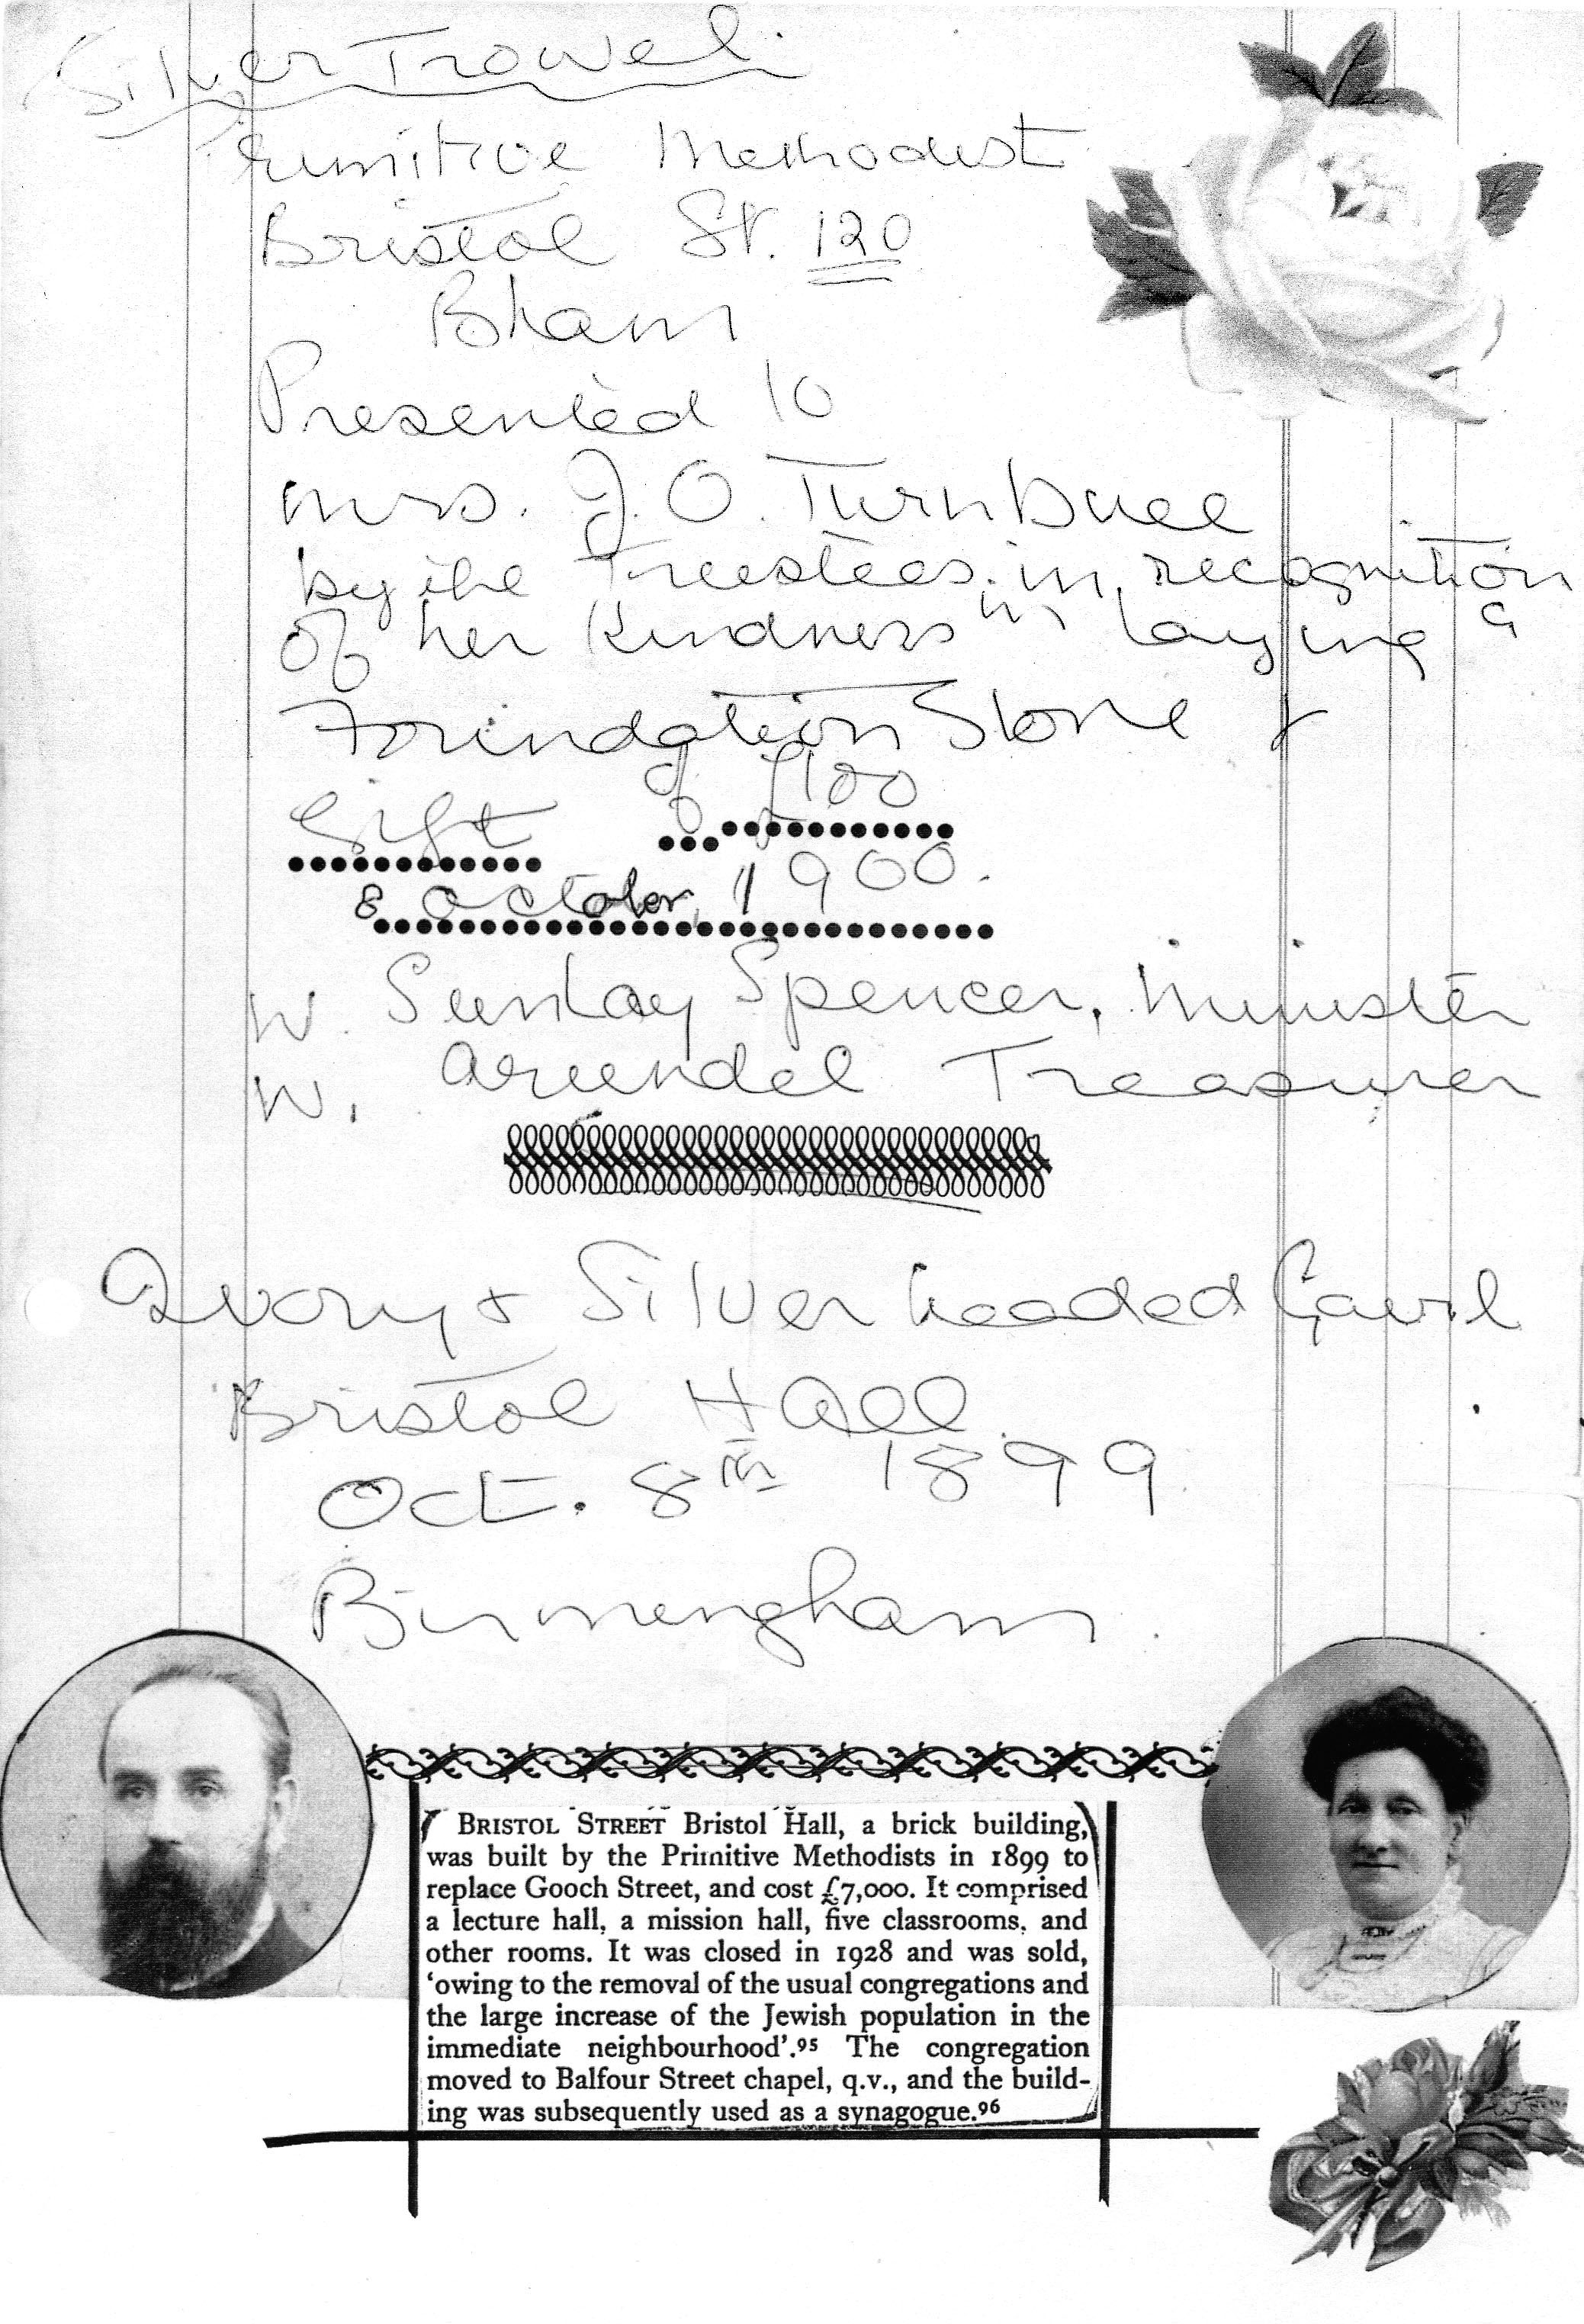 Silver Trowel.
Primitive Methodist
Bristol St. 120
Bham
Presented to
Mrs. J. O. Turnbull
by the Trustees in recognition
of her kindness in laying a
Foundation Stone &
Gift of £100
8 October, 1900.
W. Sunlay Spencer, Minister
W. Arundel Treasurer
Ivory & Silver headed Gavil
Bristol Hall.
Oct. 8th 1899
Birmengham
BRISTOL STREET Bristol Hall, a brick building,
was built by the Primitive Methodists in 1899 to
replace Gooch Street, and cost £7,000. It comprised
a lecture hall, a mission hall, five classrooms, and
other rooms. It was closed in 1928 and was sold,
‘owing to the removal of the usual congregations and
the large increase of the Jewish population in the
immediate neighbourhood’.95 The congregation
moved to Balfour Street chapel, q.v., and the build-
ing was subsequently used as a synagogue.96